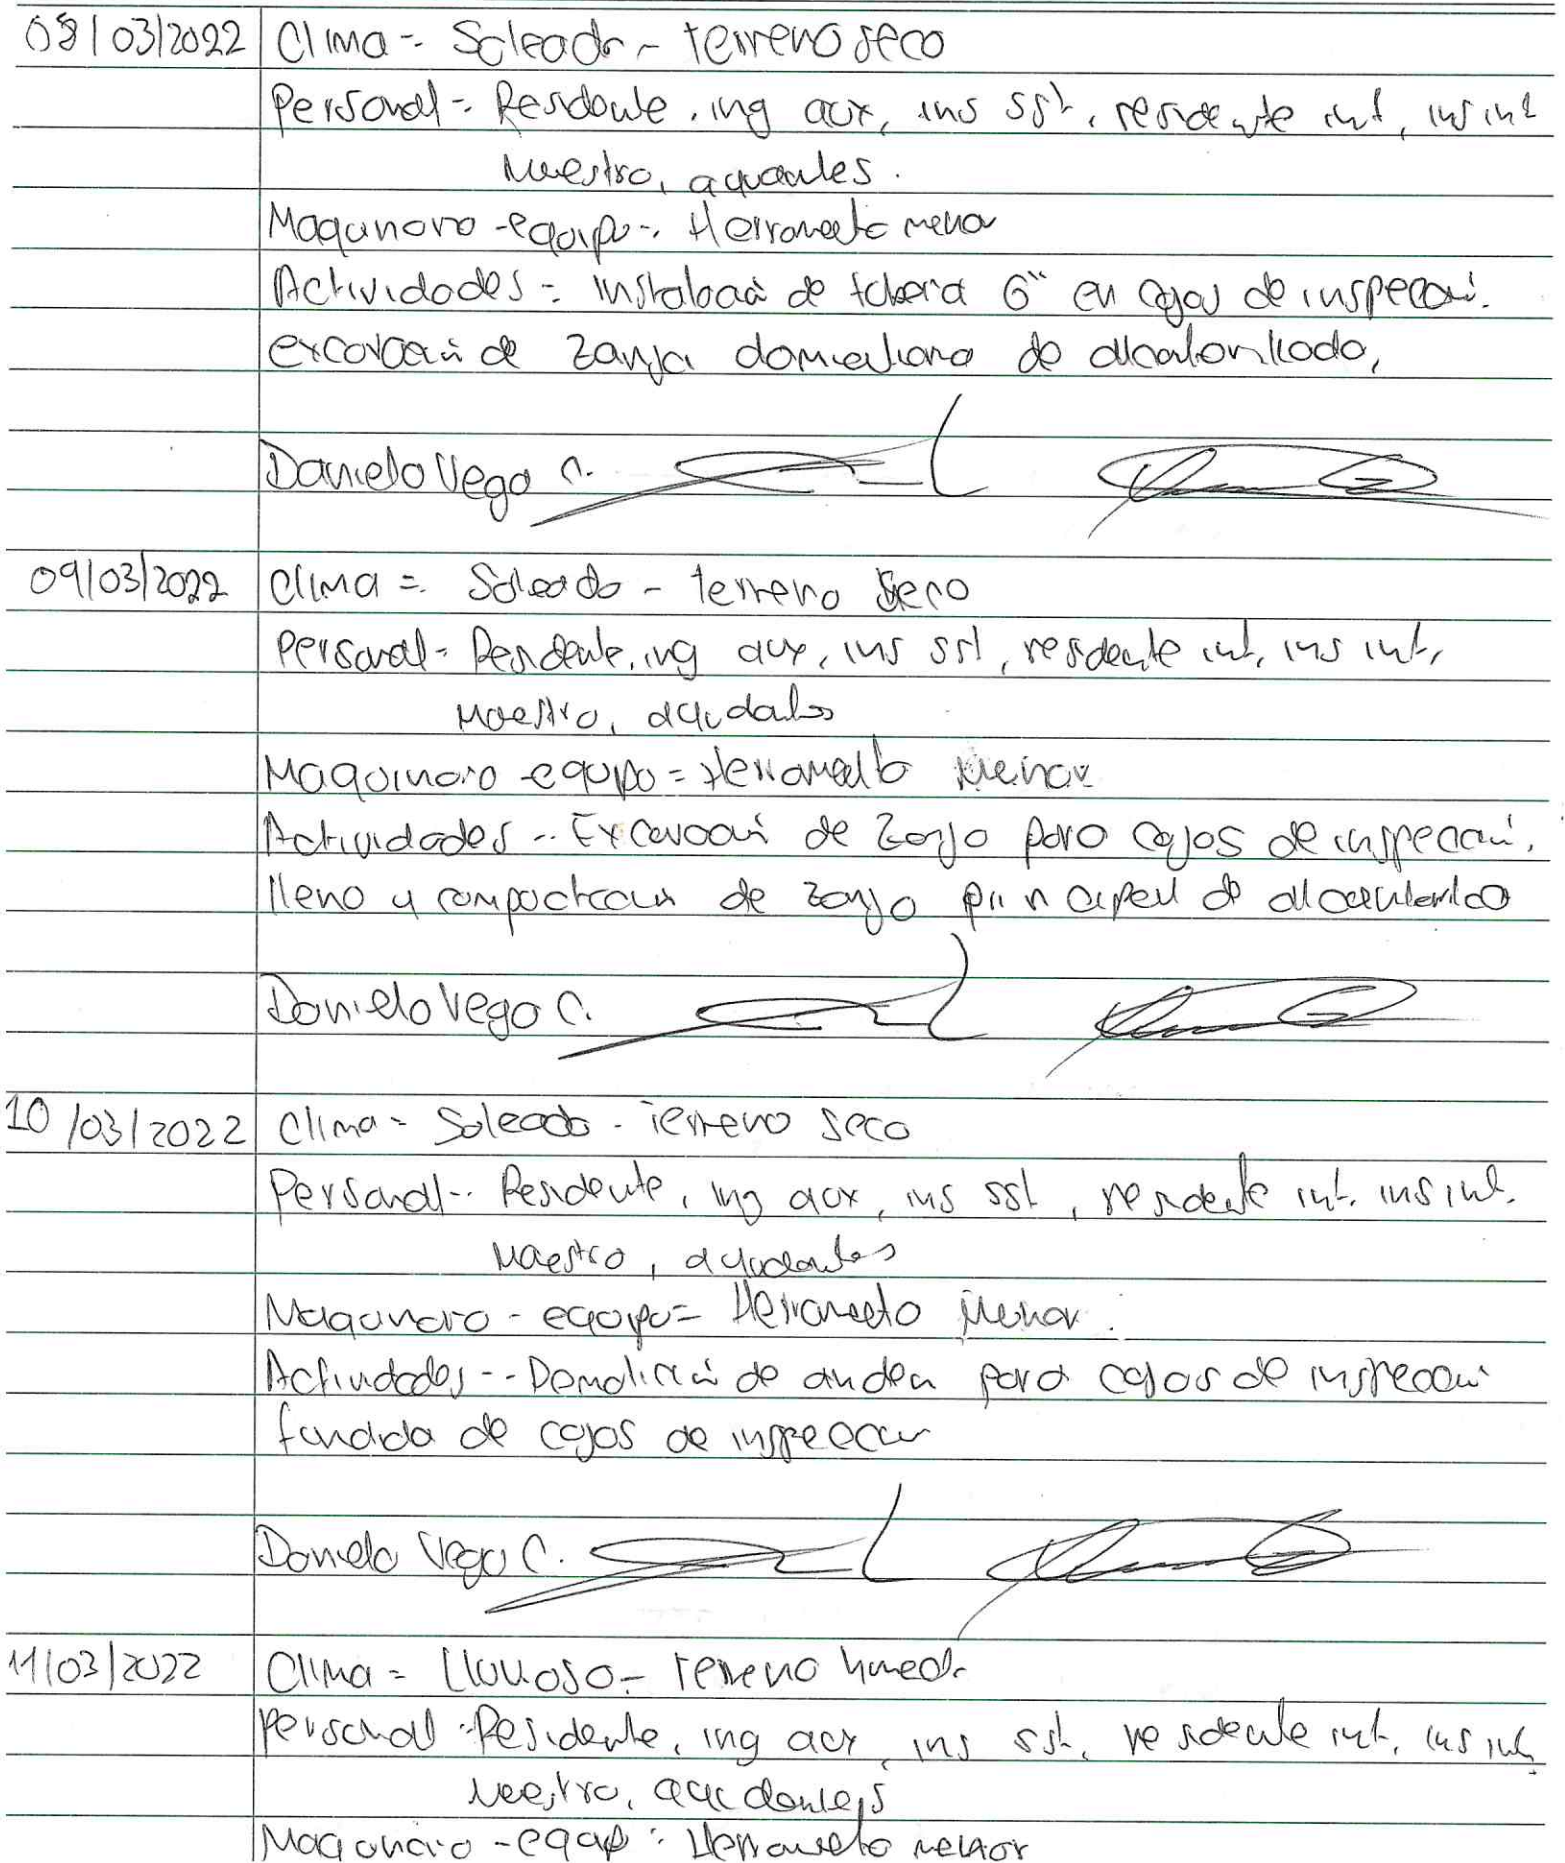 08/03/2022 Clima = Soleado - terreno seco
Personal = Residente, ing aux, ins sst, residente int, ins int
Maestro, ayudantes.
Maquinaria - equipo = Herramienta menor
Actividades = instalación de tubería 6" en cajas de inspección.
excavación de zanja domiciliaria de alcantarillado,
Daniela Vega C.
09/03/2022 Clima = Soleado - terreno seco
Personal = Residente, ing aux, ins sst, residente int, ins int,
Maestro, ayudantes
Maquinaria - equipo = Herramienta Menor
Actividades = Excavación de zanja para cajas de inspección,
lleno y compactación de zanja principal de alcantarillado
Daniela Vega C.
10/03/2022 Clima = Soleado - Terreno seco
Personal = Residente, ing aux, ins sst, residente int. ins int.
Maestro, ayudantes
Maquinaria - equipo = Herramienta Menor.
Actividades = Demolición de anden para cajas de inspección
fundida de cajas de inspección
Daniela Vega C.
11/03/2022 Clima = Lluvioso - Terreno humedo
Personal = Residente, ing aux, ins sst, residente int, ins int,
Maestro, ayudantes
Maquinaria - equipo = Herramienta menor